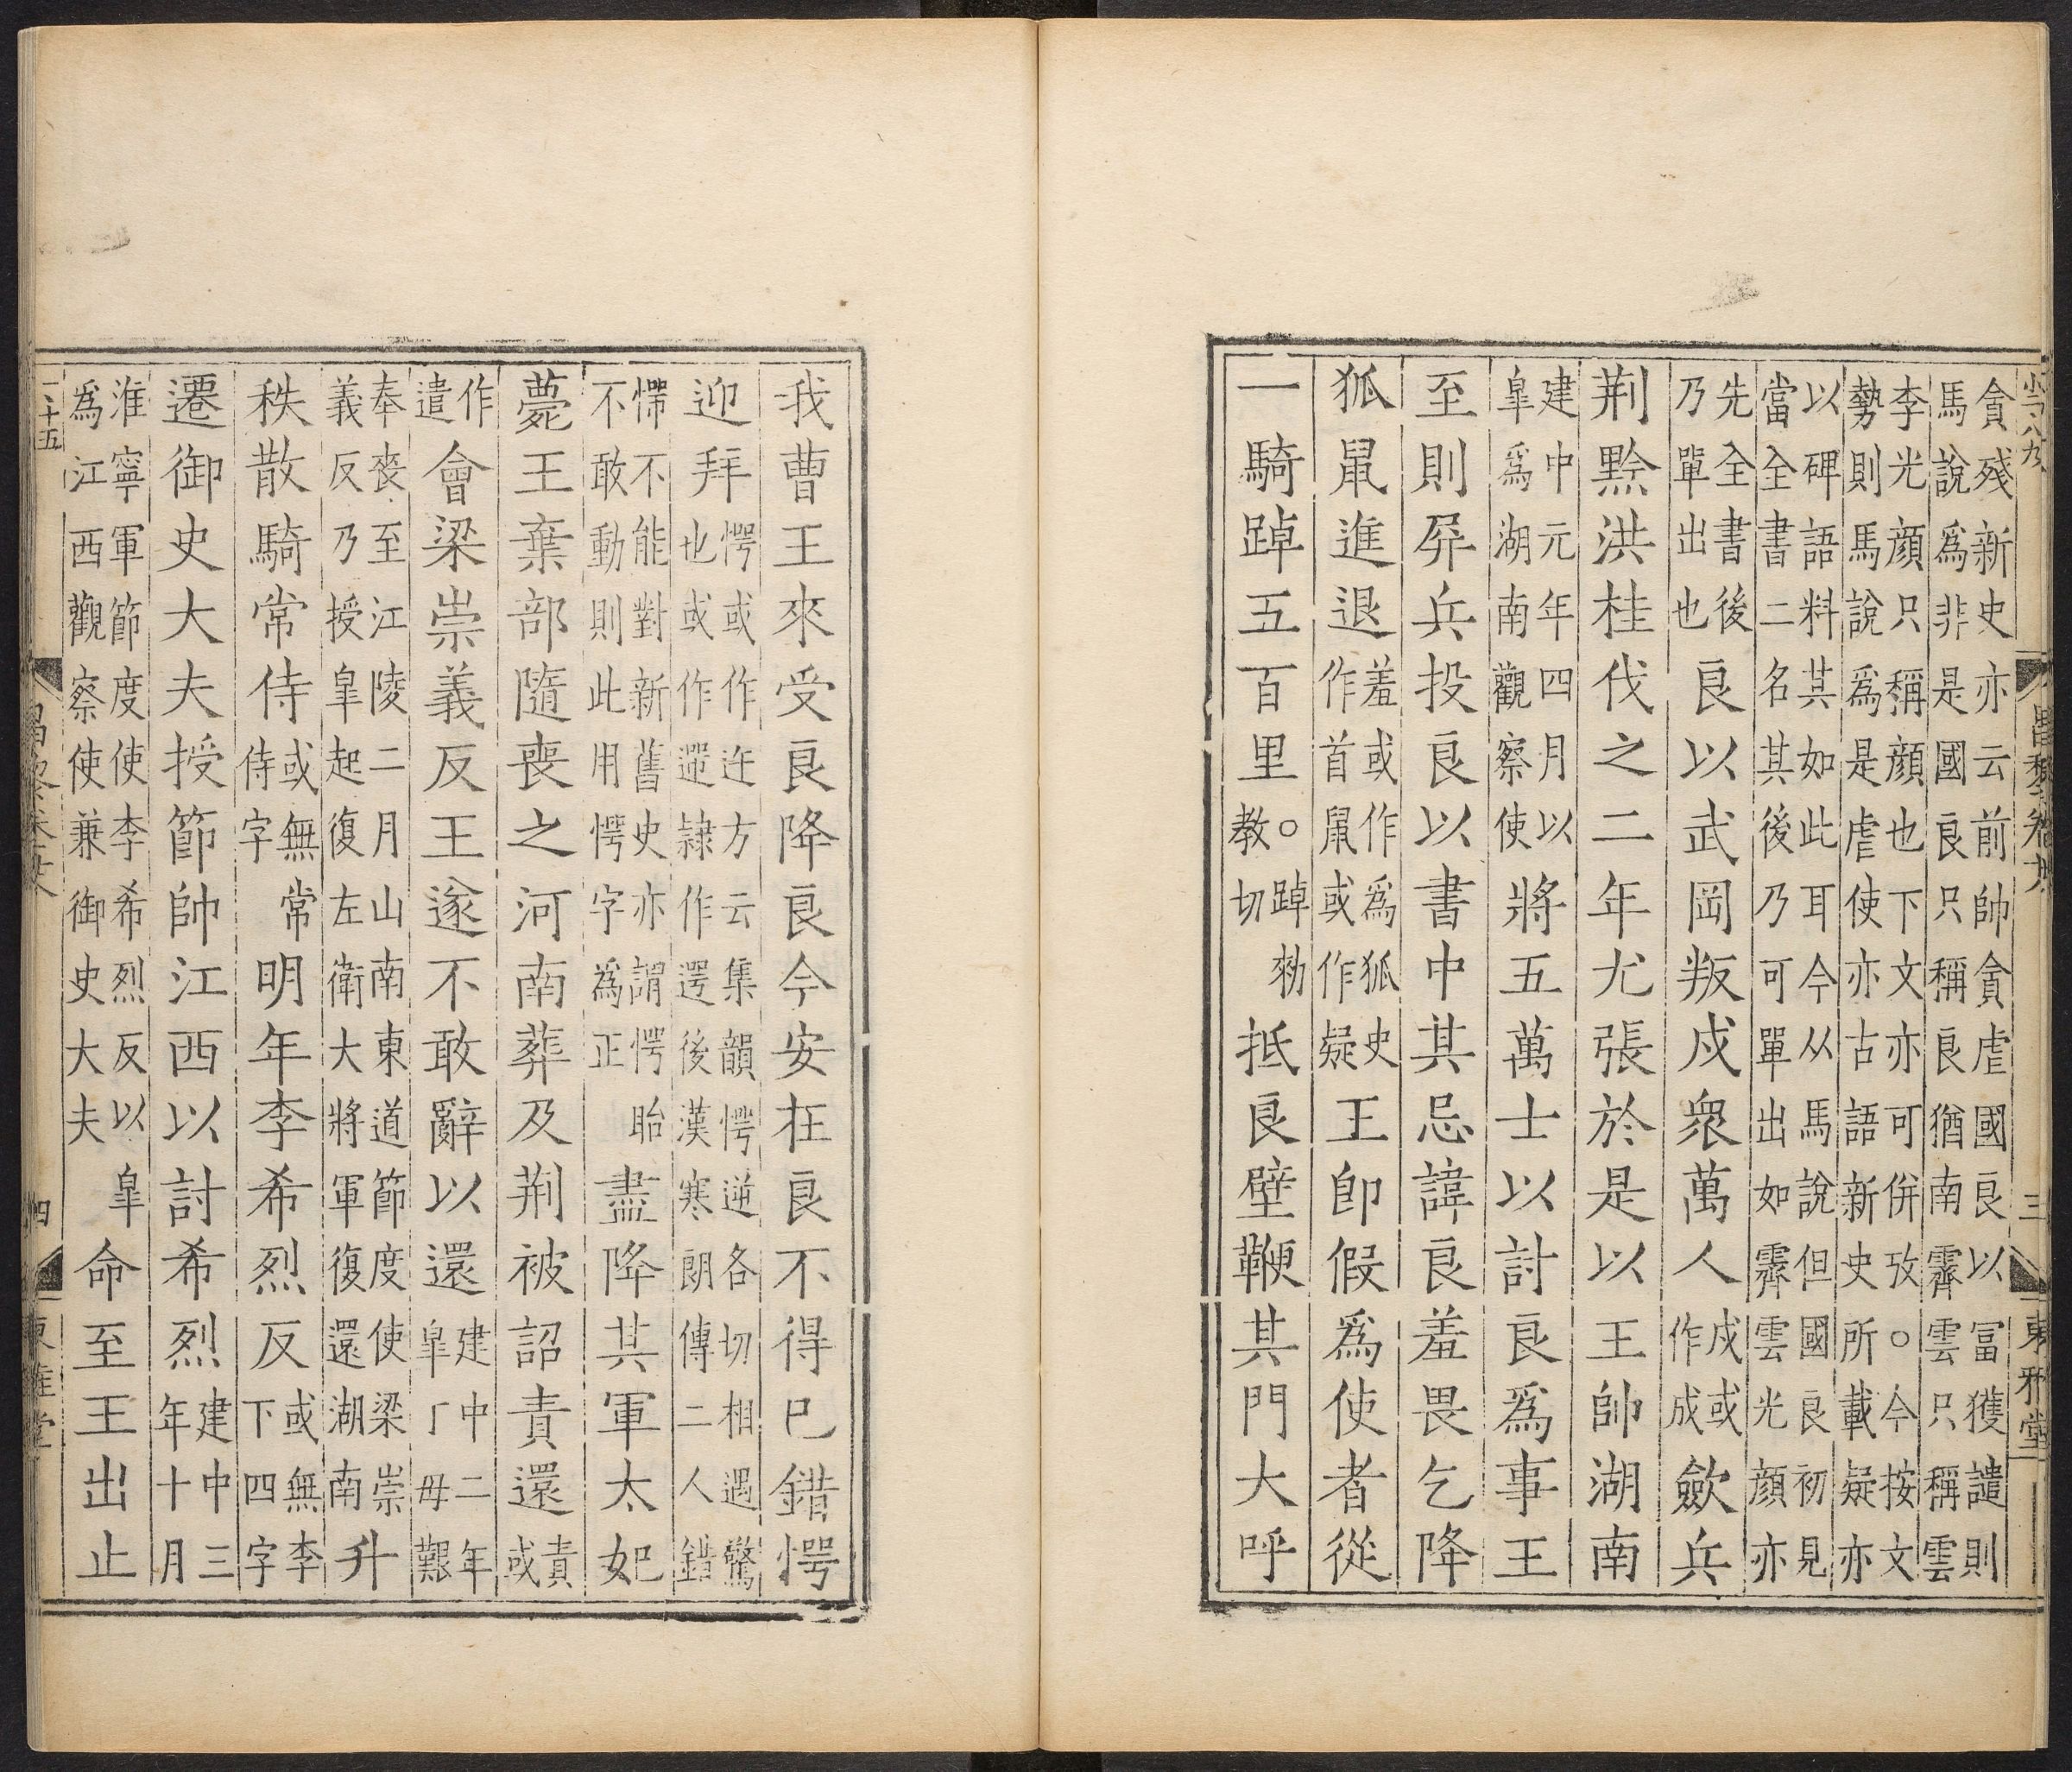 貪殘新史亦云前帥貪虐國良以富獲譴則
馬說為非是國良只稱良猶南霽雲只稱雲
李光顏只稱顏也下文亦可併攷○今按文
勢則馬說爲是虐使亦古語新史所載疑亦
以碑語料其如此耳今从馬說但國良初見
當全書二名其後乃可單出如霽雲光顏亦
先全書後乃單出也良以武岡叛戍衆萬人戍或作成歛兵
荆黔洪桂伐之二年尤張於是以王帥湖南
建中元年四月以皐爲湖南觀察使將五萬士以討良爲事王
至則屏兵投良以書中其忌諱良羞畏乞降
狐鼠進退羞或作爲狐史作首鼠或作疑王即假爲使者從
一騎踔五百里○踔勑教切抵良壁鞭其門大呼
三
東雅堂
我曹王來受良降良今安在良不得已錯愕
迎拜愕或作迕方云集韻愕逆各切相遇驚也或作遻隷作遌後漢寒朗傳二人錯
愕不能對新舊史亦謂愕眙不敢動則此用愕字為正盡降其軍太妃
薨王棄部隨喪之河南葬及荆被詔責還責或
作遣會梁崇義反王遂不敢辭以還建中二年皐丁毋艱
奉喪至江陵二月山南東道節度使梁崇義反乃授皐起復左衛大將軍復還湖南升
秩散騎常侍或無常侍字明年李希烈反或無李下四字
遷御史大夫授節帥江西以討希烈建中三年十月
淮寧軍節度使李希烈反以皐為江西觀察使兼御史大夫命至王出止
四
東雅堂